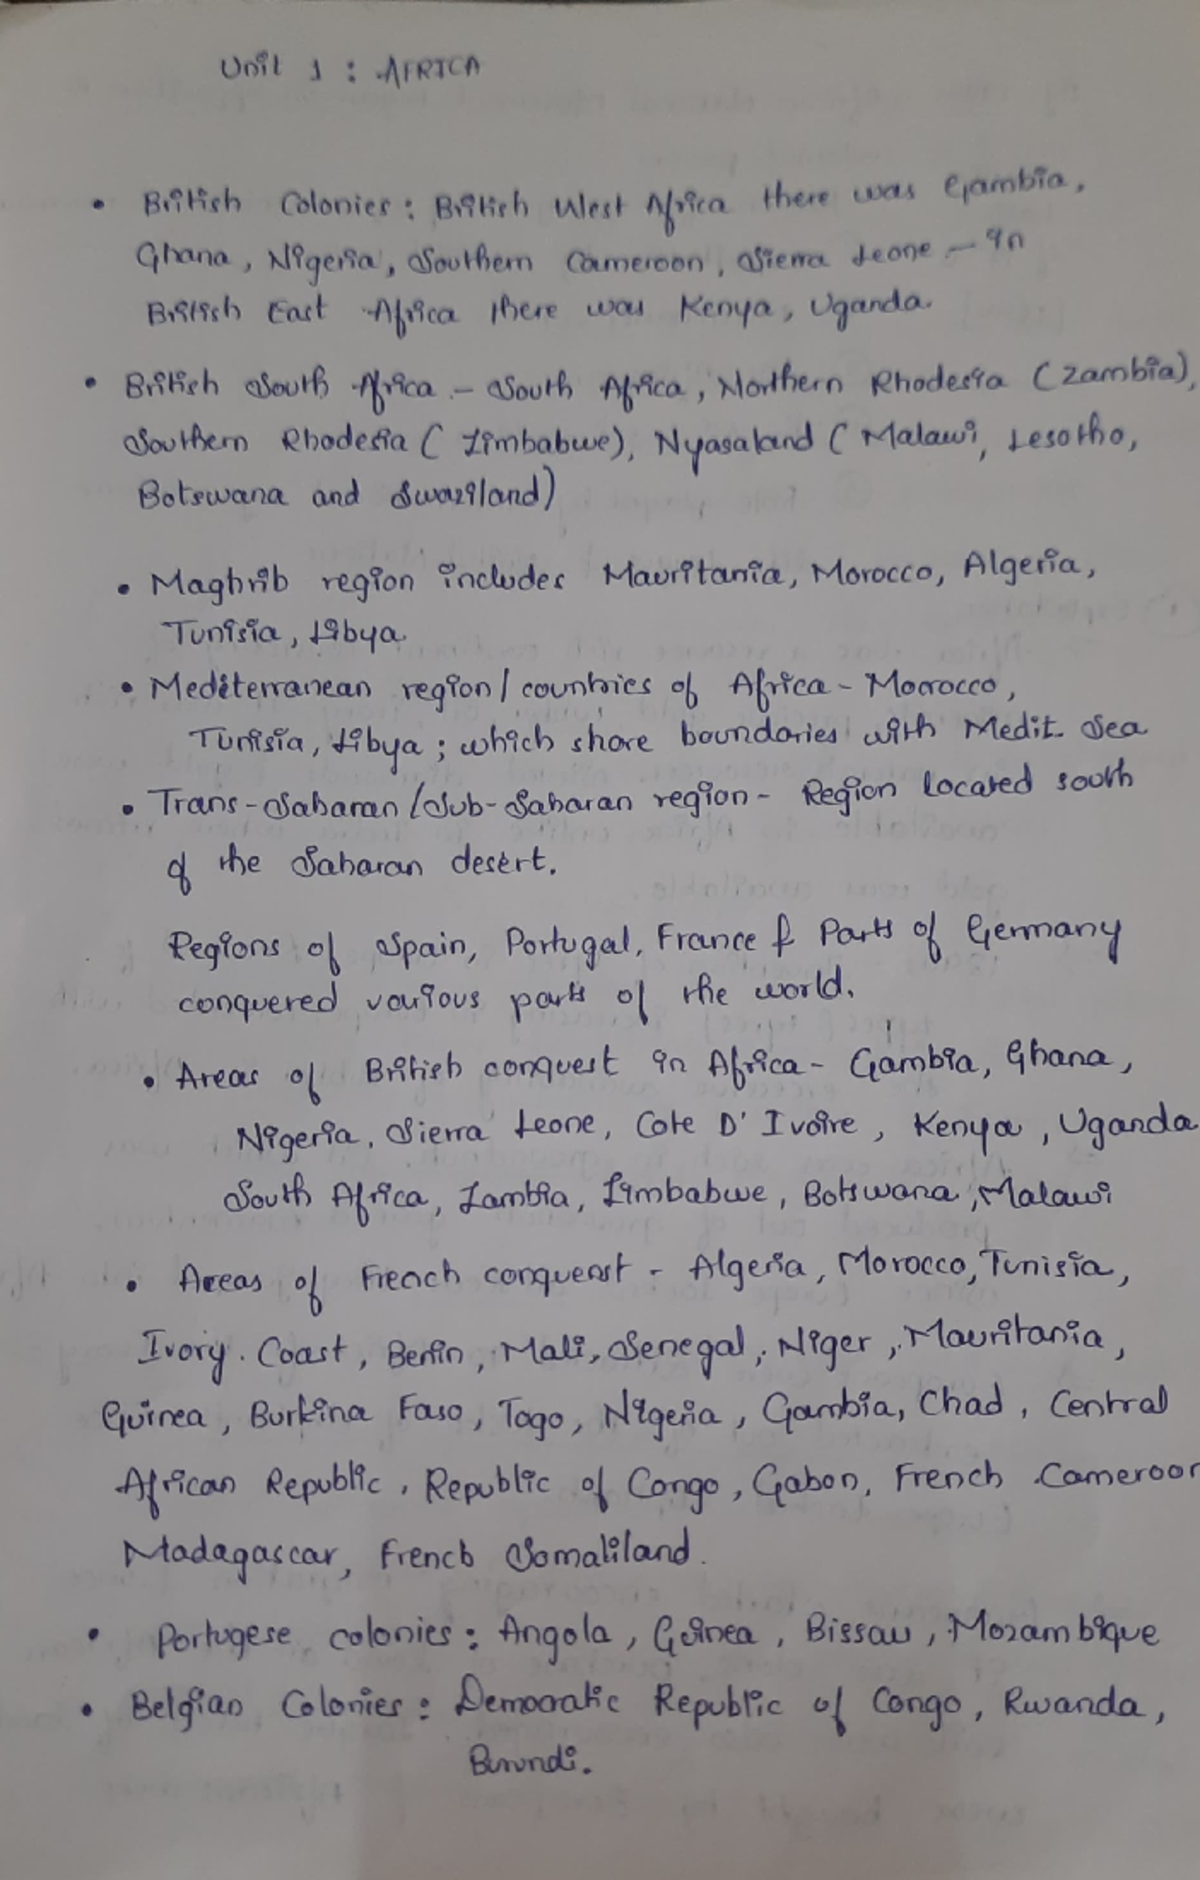 Unit 1 : AFRICA
• British Colonies: British West Africa there was Gambia,
Ghana, Nigeria, Southern Cameroon, Sierra Leone – In
British East Africa there was Kenya, Uganda
• British South Africa – South Africa, Northern Rhodesia (Zambia),
Southern Rhodesia (Zimbabwe), Nyasaland (Malawi, Lesotho,
Botswana and Swaziland)
• Maghrib region includes Mauritania, Morocco, Algeria,
Tunisia, Libya
• Mediterranean region/countries of Africa – Morocco,
Tunisia, Libya ; which share boundaries with Medit. Sea
• Trans-Saharan/Sub-Saharan region – Region located south
of the Saharan desert.
Regions of Spain, Portugal, France & Parts of Germany
conquered various parts of the world.
• Areas of British conquest in Africa – Gambia, Ghana,
Nigeria, Sierra Leone, Cote D' Ivoire, Kenya, Uganda
South Africa, Zambia, Zimbabwe, Botswana, Malawi
• Areas of French conquerst – Algeria, Morocco, Tunisia,
Ivory. Coast, Benin, Mali, Senegal, Niger, Mauritania,
Guinea, Burkina Faso, Togo, Nigeria, Gambia, Chad, Central
African Republic, Republic of Congo, Gabon, French Cameroon
Madagascar, French Somaliland.
• Portugese colonies: Angola, Guinea, Bissau, Mozambique
• Belgian Colonies: Democratic Republic of Congo, Rwanda,
Burundi.